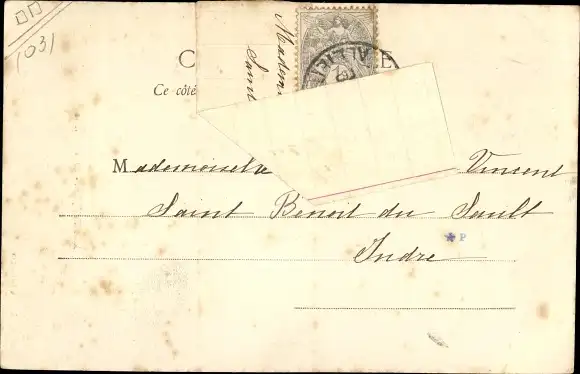 (031
C E
Ce côté
Madem
Saint
Mademoiselle Vincent
Saint Benoit du Sault
Indre
P